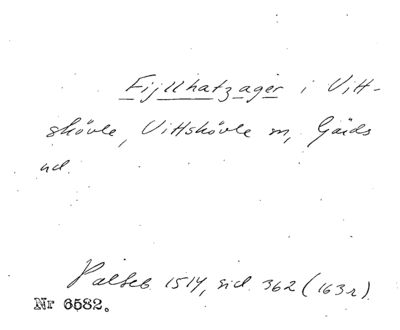 Fijllhatzager i Vitt-
skövle, Vittskövle sn, Gärds
hd.
Palteb 1514, sid 362 (163r).
Nr 6582.